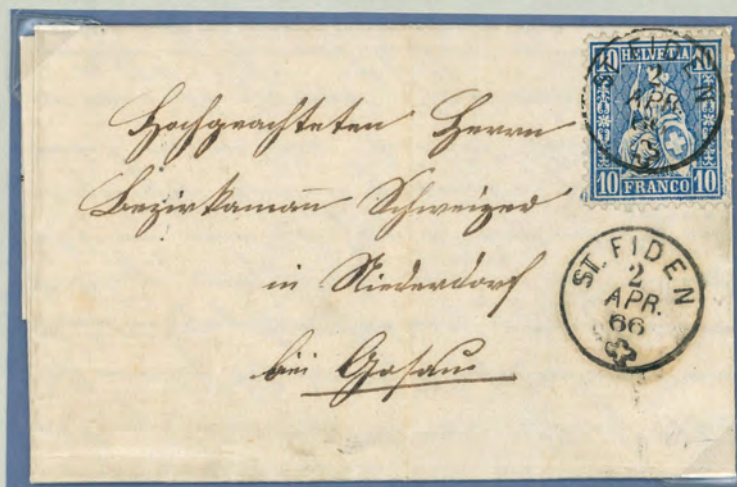 10 HELVETIA 10
ST. FIDEN
2
APR.
66
10 FRANCO 10
Hochgeachteten Herrn
Bezirksamañ Schweizer
in Niederdorf
bei Gossau
ST. FIDEN
2
APR.
66